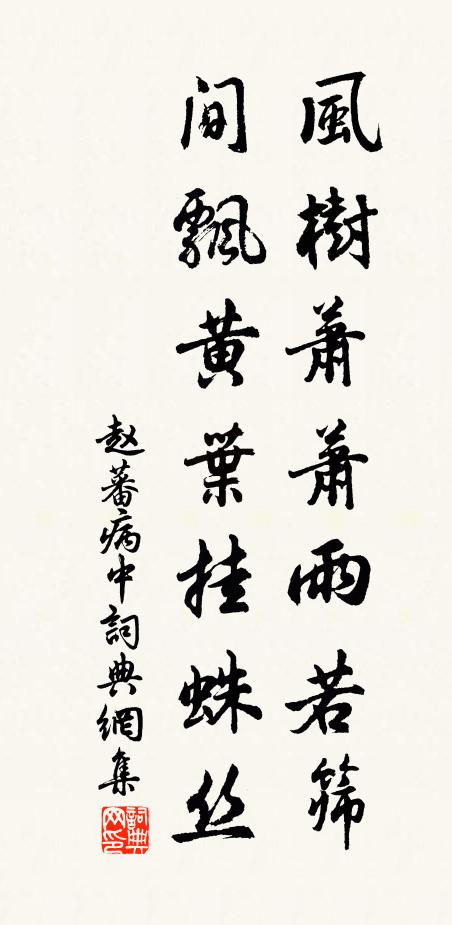 風樹蕭蕭雨若篩
间飄黄葉挂蛛丝
赵蕃病中詞典網集
詞典网印